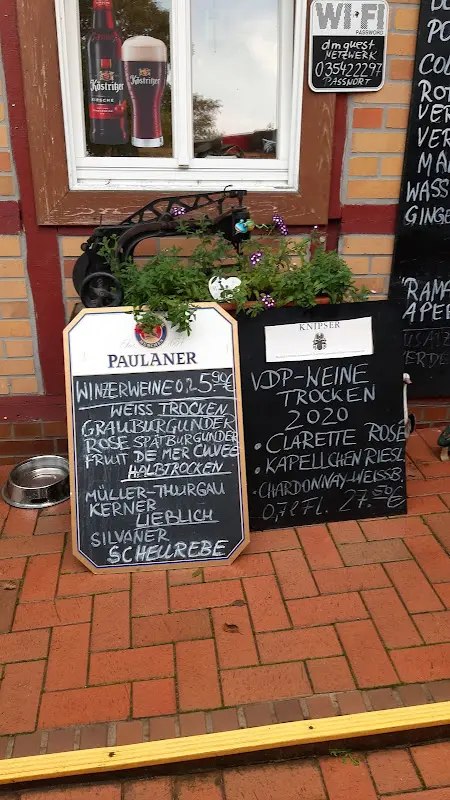 WI-FI
PASSWORD
dmguest
NETZWERK
035422297
PASSWORT
Köstritzer
Köstritzer
KIRSCHE
PAULANER
WINZERWEINE 0,2 5.90€
WEISS TROCKEN
GRAUBURGUNDER
ROSE SPÄTBURGUNDER
FRUIT DE MER CUVEE
HALBTROCKEN
MÜLLER-THURGAU
KERNER
LIEBLICH
SILVANER
SCHEUREBE
KNIPSER
VDP-WEINE
TROCKEN
2020
• CLARETTE ROSE
• KAPELLCHEN RIESL
• CHARDONNAY-WEISSB.
0,7L FL. 27.50/€
PO
COL
ROT
VER
VER
MAR
WASS
GINGE
"RAMA
APER